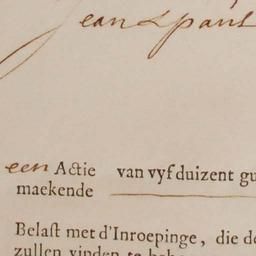 een Actie van vyf duizent gu
maekende
Belast met d'Inroepinge, die de
zullen vinden te beh